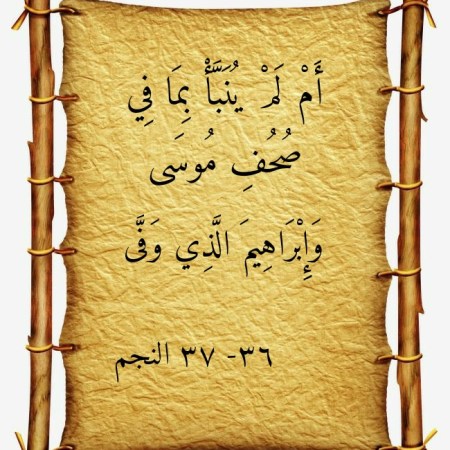 أَمْ لَمْ يُنَبَّأْ بِمَا فِي
صُحُفِ مُوسَى
وَإِبْرَاهِيمَ الَّذِي وَفَّى
٣٦- ٣٧ النجم